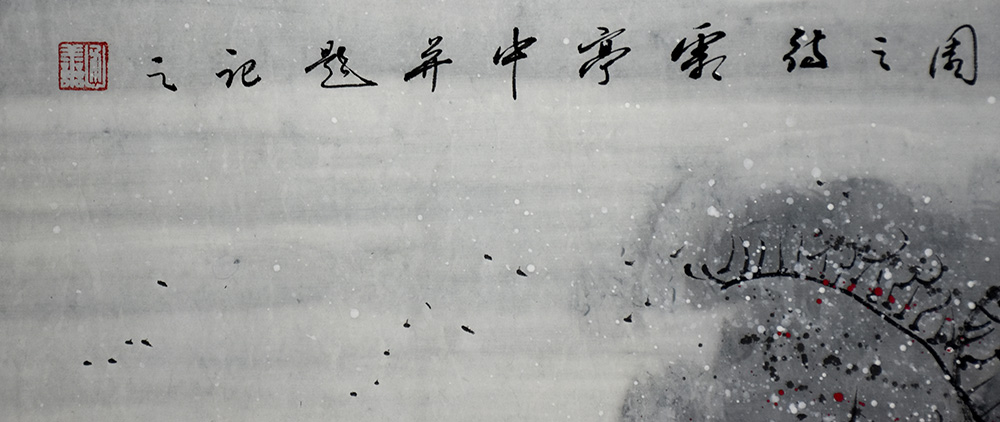 周之待霜亭中并题记之